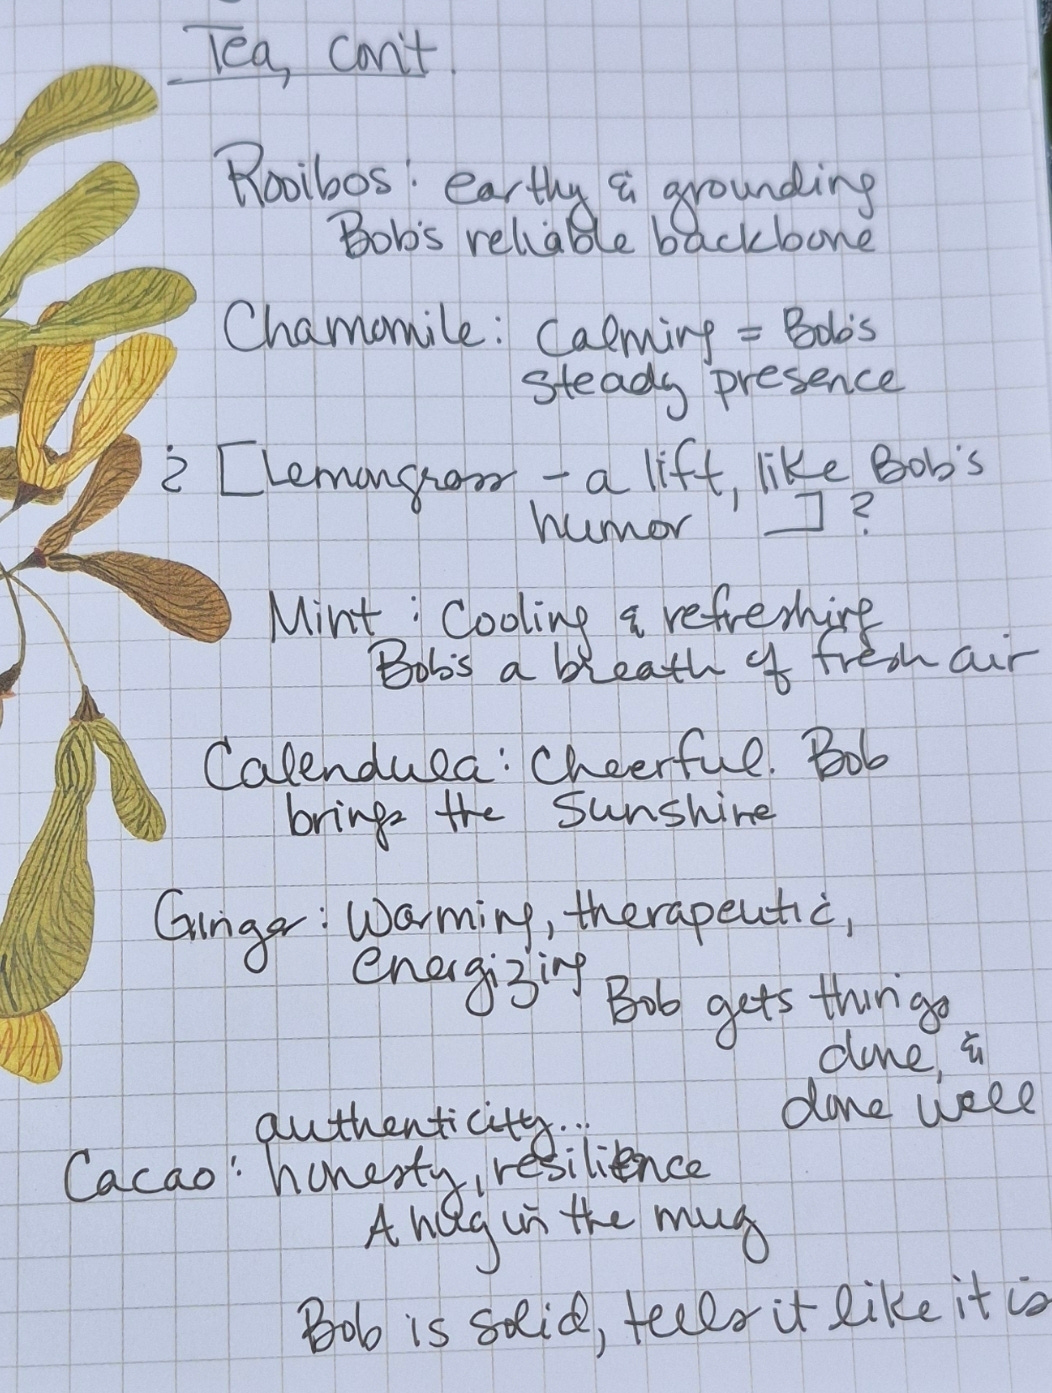 Tea, con't.
Rooibos: earthy & grounding
Bob's reliable backbone
Chamomile: Calming = Bob's
steady presence
¿ [Lemongrass – a lift, like Bob's
humor ] ?
Mint: Cooling & refreshing
Bob's a breath of fresh air
Calendula: Cheerful. Bob
brings the sunshine
Ginger: Warming, therapeutic,
energizing
Bob gets things
done, &
done well
authenticity...
Cacao: honesty, resilience
A hug in the mug
Bob is solid, tells it like it is